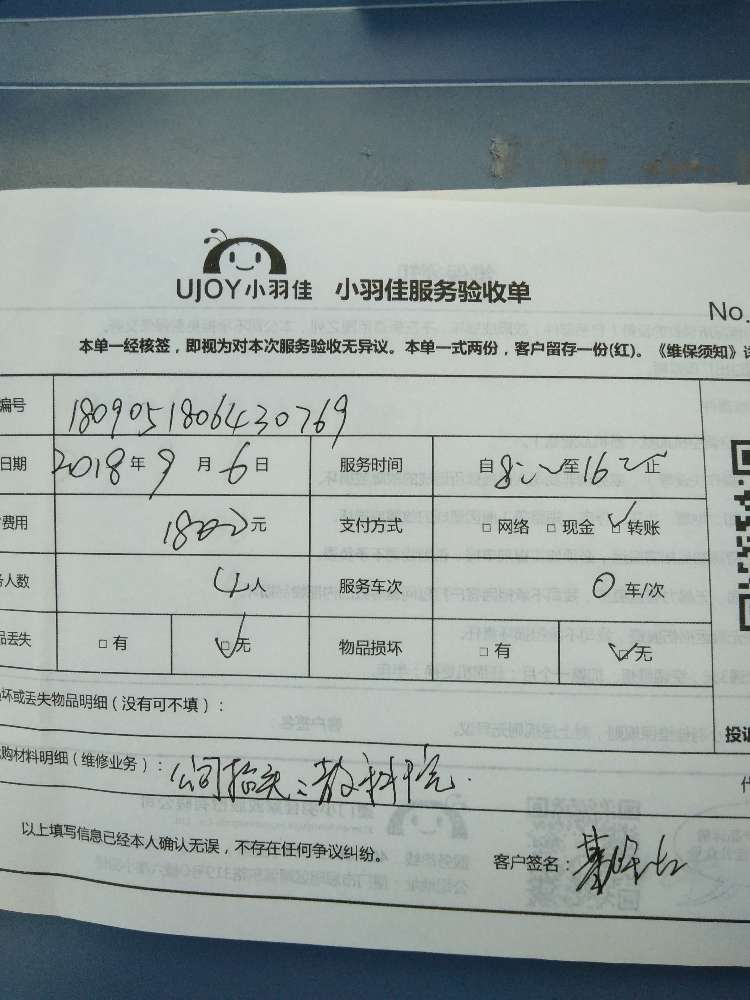 UJOY小羽佳 小羽佳服务验收单
No.
本单一经核签，即视为对本次服务验收无异议。本单一式两份，客户留存一份(红)。《维保须知》
编号 1809051806430769
日期 2018年9月6日 服务时间 自8:00至16:00止
费用 1800元 支付方式 □网络 □现金 ☑转账
人数 4人 服务车次 0车/次
品丢失 □有 ☑无 物品损坏 □有 ☑无
坏或丢失物品明细（没有可不填）：
购材料明细（维修业务）：公司抬头：教科院
投诉
以上填写信息已经本人确认无误，不存在任何争议纠纷。
客户签名：